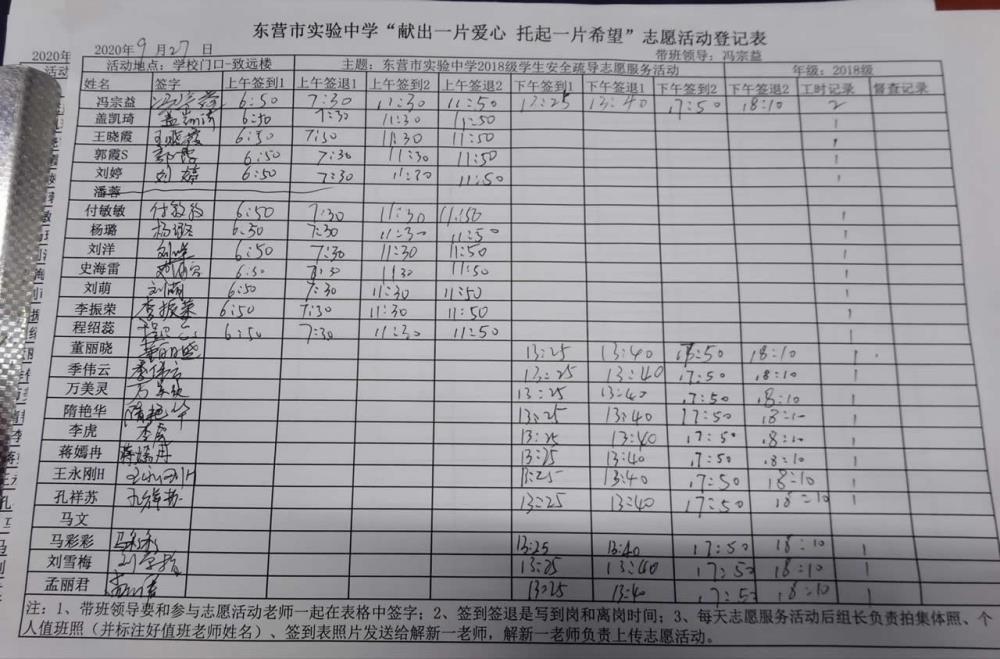 东营市实验中学“献出一片爱心 托起一片希望”志愿活动登记表
2020年
2020年9月27日 带班领导：冯宗益
活动地点：学校门口—致远楼 主题：东营市实验中学2018级学生安全疏导志愿服务活动 年级：2018级
姓名 签字 上午签到1 上午签退1 上午签到2 上午签退2 下午签到1 下午签退1 下午签到2 下午签退2 工时记录 督查记录
冯宗益 冯宗益 6:50 7:30 11:30 11:50 13:25 13:40 17:50 18:10 2
盖凯琦 盖凯琦 6:50 7:30 11:30 11:50 1
王晓霞 王晓霞 6:50 7:30 11:30 11:50 1
郭霞S 郭霞 6:50 7:30 11:30 11:50 1
刘婷 刘婷 6:50 7:30 11:30 11:50 1
潘蓉
付敏敏 付敏敏 6:50 7:30 11:30 11:50 1
杨璐 杨璐 6:50 7:30 11:30 11:50 1
刘洋 刘洋 6:50 7:30 11:30 11:50 1
史海雷 6:50 7:30 11:30 11:50 1
刘萌 刘萌 6:50 7:30 11:30 11:50 1
李振荣 李振荣 6:50 7:30 11:30 11:50 1
程绍蕊 6:50 7:30 11:30 11:50 1
董丽晓 董丽晓 13:25 13:40 17:50 18:10 1
季伟云 季伟云 13:25 13:40 17:50 18:10 1
万美灵 万美灵 13:25 13:40 17:50 18:10 1
隋艳华 隋艳华 13:25 13:40 17:50 18:10 1
李虎 李虎 13:25 13:40 17:50 18:10 1
蒋嫣冉 蒋嫣冉 13:25 13:40 17:50 18:10 1
王永刚H 王永刚H 13:25 13:40 17:50 18:10 1
孔祥苏 孔祥苏 13:25 13:40 17:50 18:10 1
马文
马彩彩 马彩彩 13:25 13:40 17:50 18:10 1
刘雪梅 刘雪梅 13:25 13:40 17:50 18:10 1
孟丽君 13:25 13:40 17:50 18:10 1
注：1、带班领导要和参与志愿活动老师一起在表格中签字；2、签到签退是写到岗和离岗时间；3、每天志愿服务活动后组长负责拍集体照、个
人值班照（并标注好值班老师姓名）、签到表照片发送给解新一老师，解新一老师负责上传志愿活动。